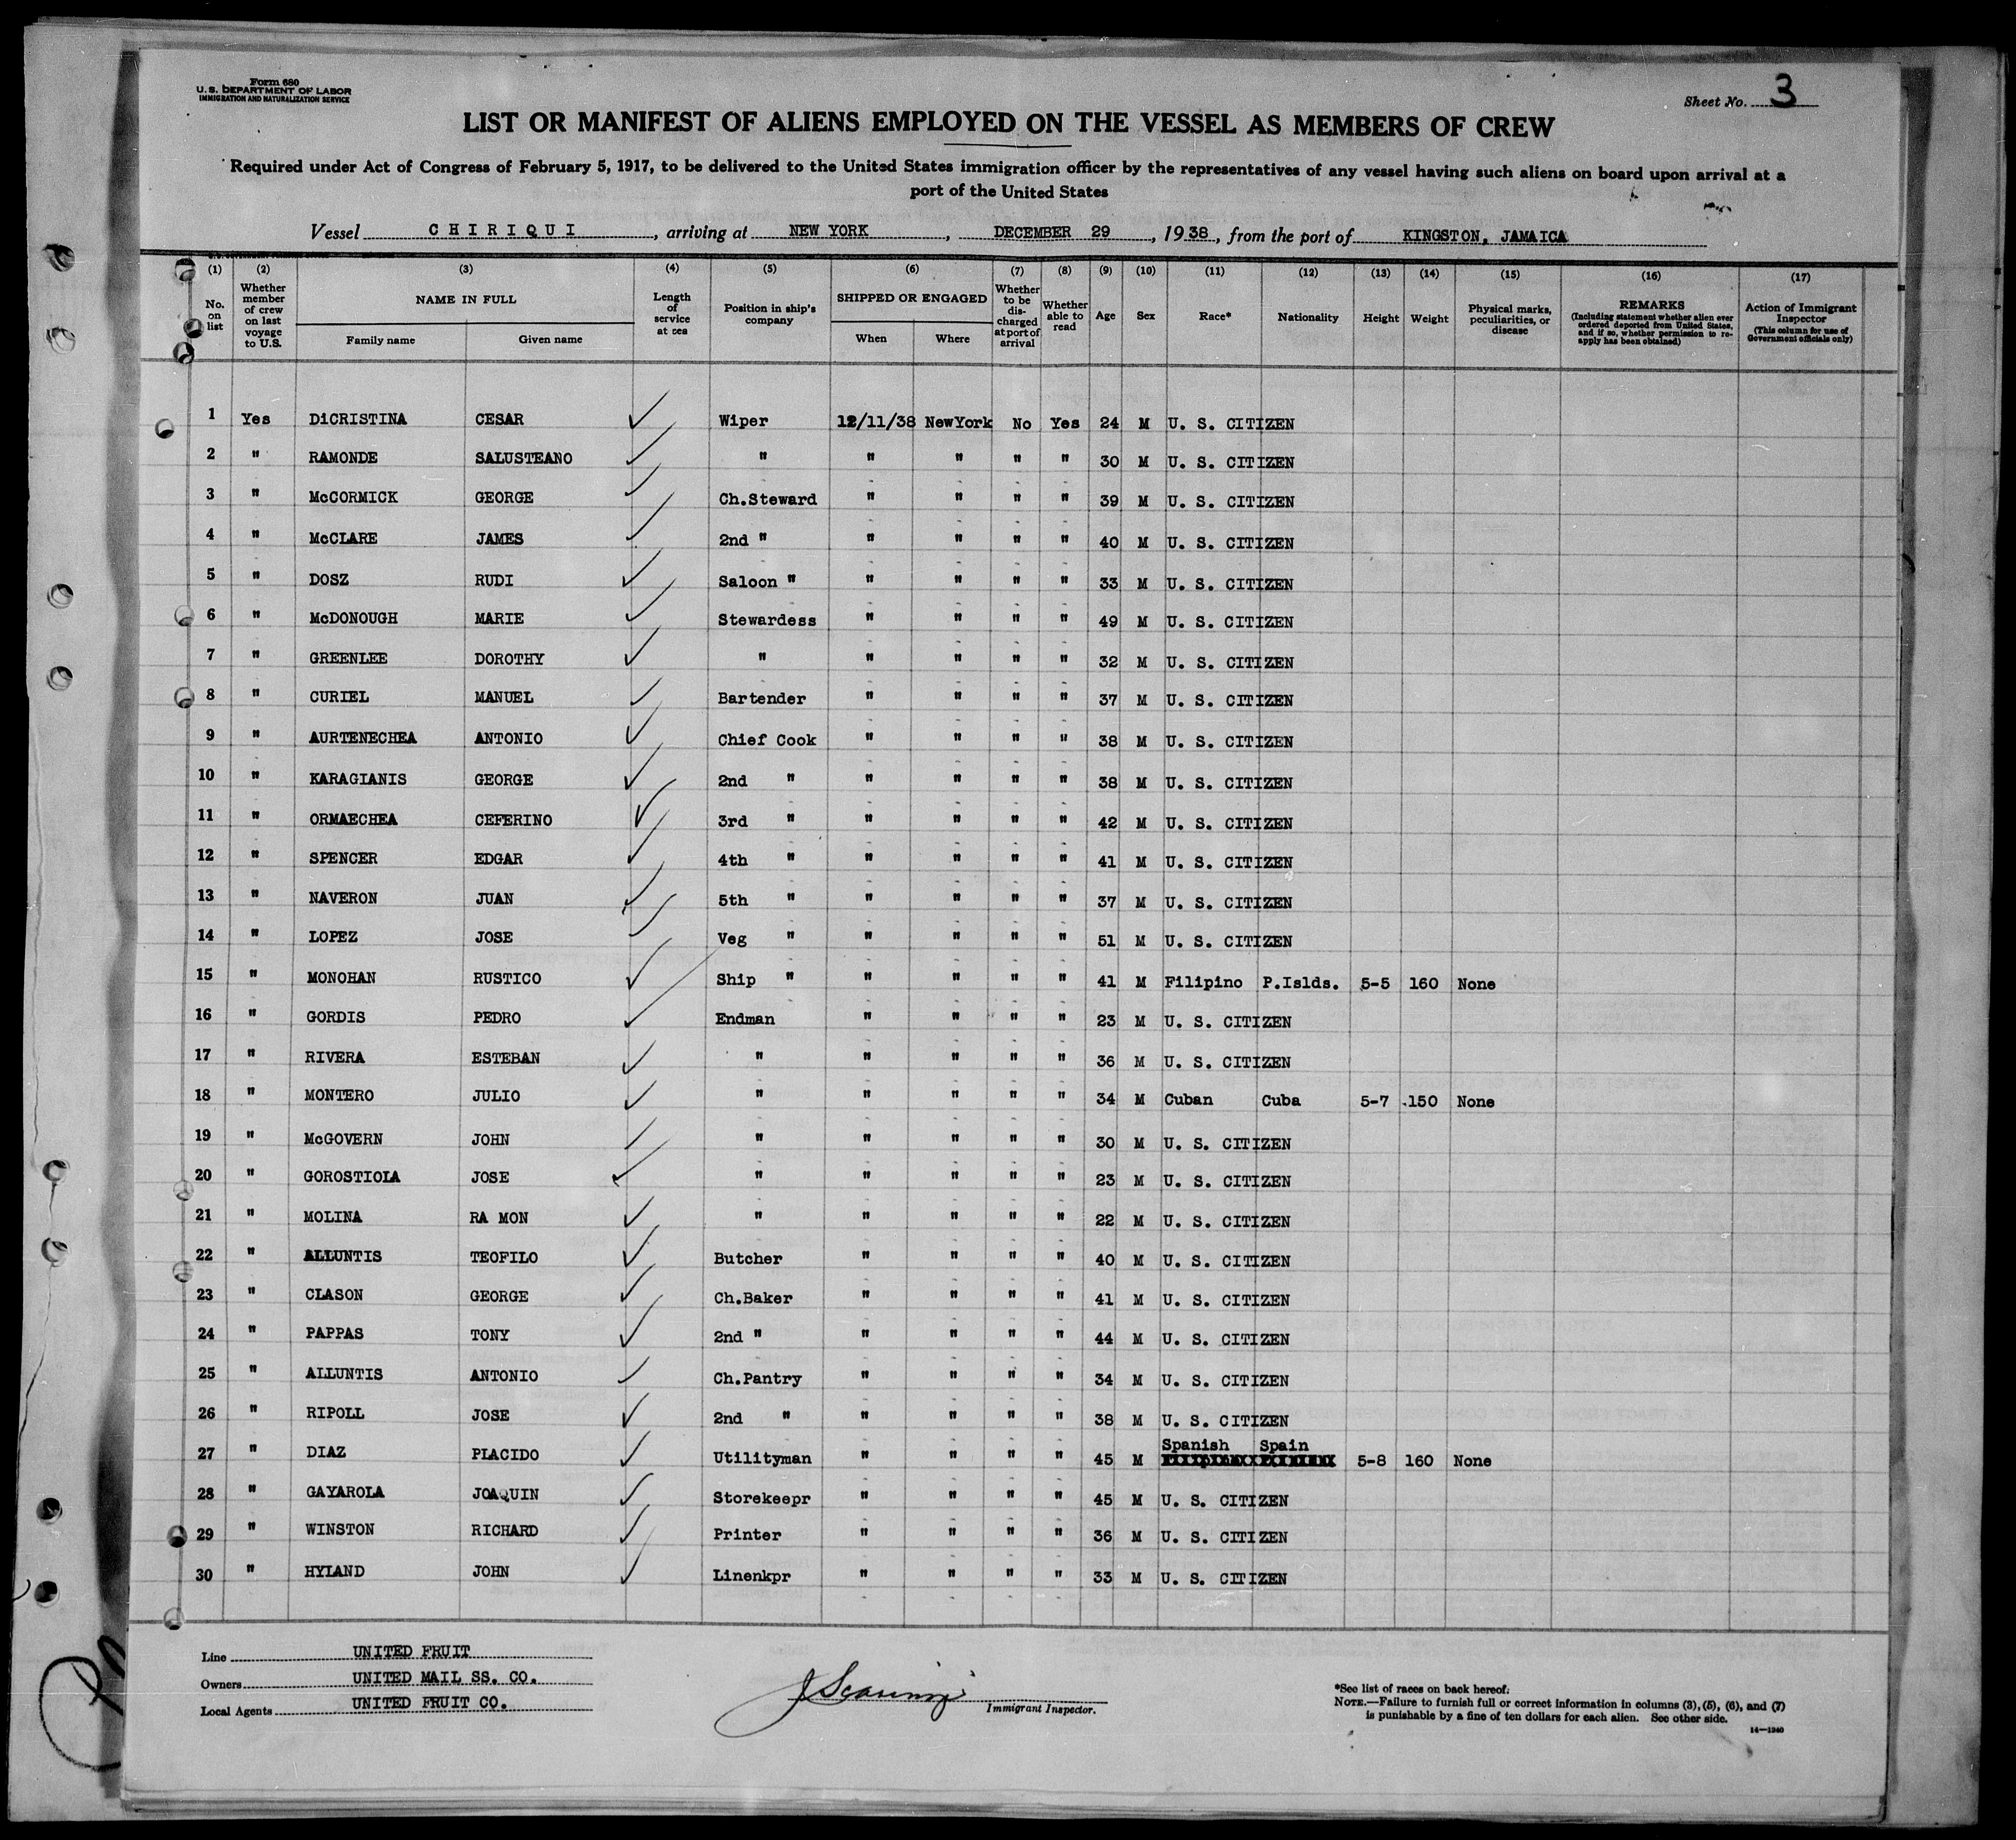 Form 680
U. S. DEPARTMENT OF LABOR
IMMIGRATION AND NATURALIZATION SERVICE
Sheet No. 3
LIST OR MANIFEST OF ALIENS EMPLOYED ON THE VESSEL AS MEMBERS OF CREW
Required under Act of Congress of February 5, 1917, to be delivered to the United States immigration officer by the representatives of any vessel having such aliens on board upon arrival at a
port of the United States
Vessel CHIRIQUI, arriving at NEW YORK, DECEMBER 29, 1938, from the port of KINGSTON, JAMAICA
(1) (2) (3) (4) (5) (6) (7) (8) (9) (10) (11) (12) (13) (14) (15) (16) (17)
No. on list
Whether member of crew on last voyage to U.S.
NAME IN FULL
Family name Given name
Length of service at sea
Position in ship's company
SHIPPED OR ENGAGED
When Where
Whether to be discharged at port of arrival
Whether able to read
Age Sex Race* Nationality Height Weight
Physical marks, peculiarities, or disease
REMARKS
(Including statement whether alien ever ordered deported from United States, and if so, whether permission to reapply has been obtained)
Action of Immigrant Inspector
(This column for use of Government officials only)
1 Yes DiCRISTINA CESAR Wiper 12/11/38 NewYork No Yes 24 M U. S. CITIZEN
2 " RAMONDE SALUSTEANO " " " " " 30 M U. S. CITIZEN
3 " McCORMICK GEORGE Ch.Steward " " " " 39 M U. S. CITIZEN
4 " McCLARE JAMES 2nd " " " " " 40 M U. S. CITIZEN
5 " DOSZ RUDI Saloon " " " " " 33 M U. S. CITIZEN
6 " McDONOUGH MARIE Stewardess " " " " 49 M U. S. CITIZEN
7 " GREENLEE DOROTHY " " " " " 32 M U. S. CITIZEN
8 " CURIEL MANUEL Bartender " " " " 37 M U. S. CITIZEN
9 " AURTENECHEA ANTONIO Chief Cook " " " " 38 M U. S. CITIZEN
10 " KARAGIANIS GEORGE 2nd " " " " " 38 M U. S. CITIZEN
11 " ORMAECHEA CEFERINO 3rd " " " " " 42 M U. S. CITIZEN
12 " SPENCER EDGAR 4th " " " " " 41 M U. S. CITIZEN
13 " NAVERON JUAN 5th " " " " " 37 M U. S. CITIZEN
14 " LOPEZ JOSE Veg " " " " " 51 M U. S. CITIZEN
15 " MONOHAN RUSTICO Ship " " " " " 41 M Filipino P.Islds. 5-5 160 None
16 " GORDIS PEDRO Endman " " " " 23 M U. S. CITIZEN
17 " RIVERA ESTEBAN " " " " " 36 M U. S. CITIZEN
18 " MONTERO JULIO " " " " " 34 M Cuban Cuba 5-7 150 None
19 " McGOVERN JOHN " " " " " 30 M U. S. CITIZEN
20 " GOROSTIOLA JOSE " " " " " 23 M U. S. CITIZEN
21 " MOLINA RA MON " " " " " 22 M U. S. CITIZEN
22 " ALLUNTIS TEOFILO Butcher " " " " 40 M U. S. CITIZEN
23 " CLASON GEORGE Ch.Baker " " " " 41 M U. S. CITIZEN
24 " PAPPAS TONY 2nd " " " " " 44 M U. S. CITIZEN
25 " ALLUNTIS ANTONIO Ch.Pantry " " " " 34 M U. S. CITIZEN
26 " RIPOLL JOSE 2nd " " " " " 38 M U. S. CITIZEN
27 " DIAZ PLACIDO Utilityman " " " " 45 M Spanish Spain 5-8 160 None
28 " GAYAROLA JOAQUIN Storekeepr " " " " 45 M U. S. CITIZEN
29 " WINSTON RICHARD Printer " " " " 36 M U. S. CITIZEN
30 " HYLAND JOHN Linenkpr " " " " 33 M U. S. CITIZEN
Line UNITED FRUIT
Owners UNITED MAIL SS. CO.
Local Agents UNITED FRUIT CO.
Immigrant Inspector.
*See list of races on back hereof.
NOTE.—Failure to furnish full or correct information in columns (3), (5), (6), and (7)
is punishable by a fine of ten dollars for each alien. See other side.
14—1240